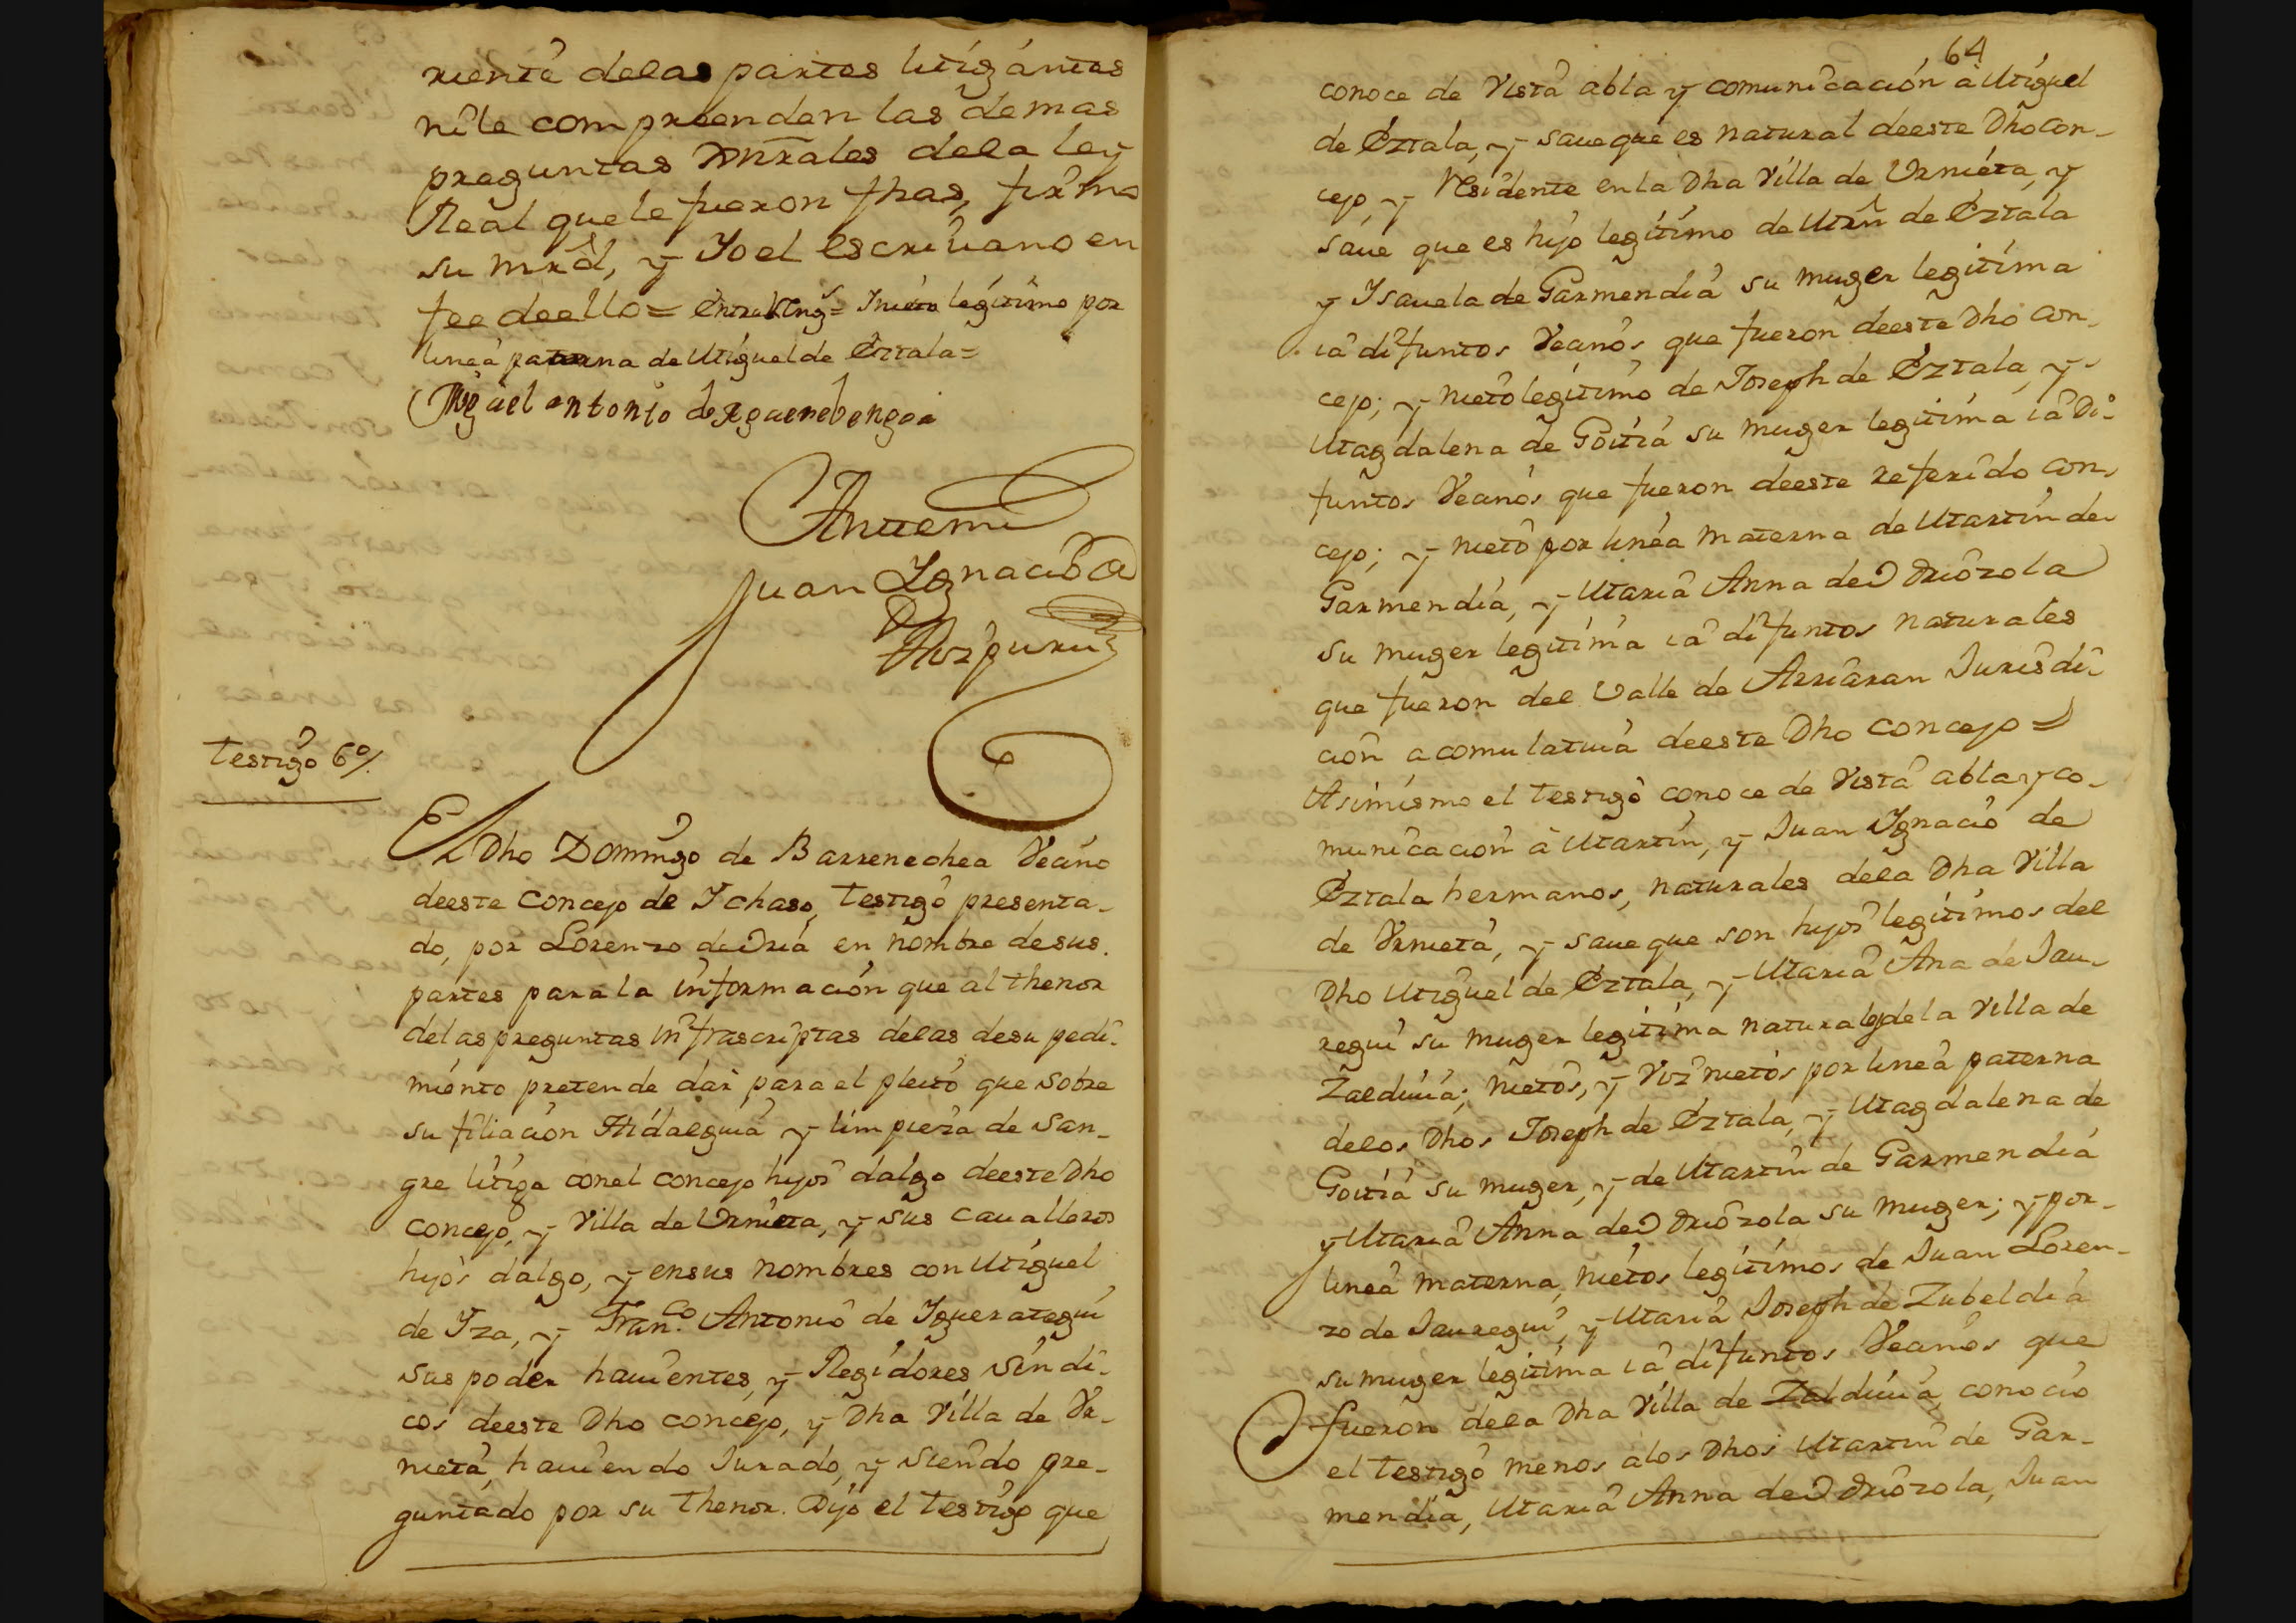 riente delas partes litigantes
nile compreenden las demas
preguntas Xnrales dela ley
Real quele fueron fhas, firmo
su mrd, y Yo el escriuano en
fee deello = Entre Rengs = Inieto legitimo por
linea paterna de Miguel de Eztala =
Miguel antonio de Aguerebengoa
Antemi
Juan Ignacio de
Aozpuru
Testigo 6º/.
El Dho Domingo de Barrenechea Vecino
deeste Concejo de Ichaso, testigo presenta-
do, por Lorenzo de Oria en nombre de sus
partes para la informacion que al thenor
delas preguntas infrascriptas delas desu pedi-
miento pretende dar para el pleito que sobre
su filiacion Hidalguia y limpieza de San-
gre litiga conel concejo hijos dalgo deeste Dho
concejo, y Villa de Urnieta, y sus caualleros
hijos dalgo, y ensus nombres con Miguel
de Yza, y Franco Antonio de Iguerategui
sus poder hauientes, y Regidores sindi-
cos deeste Dho concejo, y Dha Villa de Vr-
nieta, hauiendo Jurado, y siendo pre-
guntado por su thenor. Dijo el testigo que
64
conoce de Vista abla y comunicacion à Miguel
de Eztala, y saue que es natural deeste Dho con-
cejo, y Residente en la Dha Villa de Urnieta, y
saue que es hijo legitimo de Mrn de Eztala
y Isauela de Garmendia su muger legitima
ia difuntos Vecinos que fueron deeste Dho con-
cejo; y nieto legitimo de Joseph de Eztala, y
Magdalena de Goitia su muger legitima ia di-
funtos Vecinos que fueron deeste referido con-
cejo; y nieto por linea materna de Martin de
Garmendia, y Maria Anna de Odriozola
su muger legitima ia difuntos naturales
que fueron del Valle de Arriaran Jurisdi-
cion acomulatiua deeste Dho concejo =
Asimismo el testigo conoce de Vista abla y co-
municacion à Martin, y Juan Ignacio de
Eztala hermanos, naturales dela Dha Villa
de Vrnieta, y saue que son hijos legitimos del
Dho Miguel de Eztala, y Maria Ana de Jau-
regui su muger legitima natural dela Villa de
Zalduuia; nietos, y Viznietos por linea paterna
delos Dhos Joseph de Eztala, y Magdalena de
Goitia su muger, y de Martin de Garmendia
y Maria Anna de Odriozola su muger; y por
linea materna, nietos legitimos de Juan Loren-
zo de Jauregui, y Maria Joseph de Zubeldia
su muger legitima ia difuntos Vecinos que
fueron dela Dha Villa de Zalduuia, conocio
el testigo menos alos Dhos Martin de Gar-
mendia, Maria Anna de Odriozola, Juan